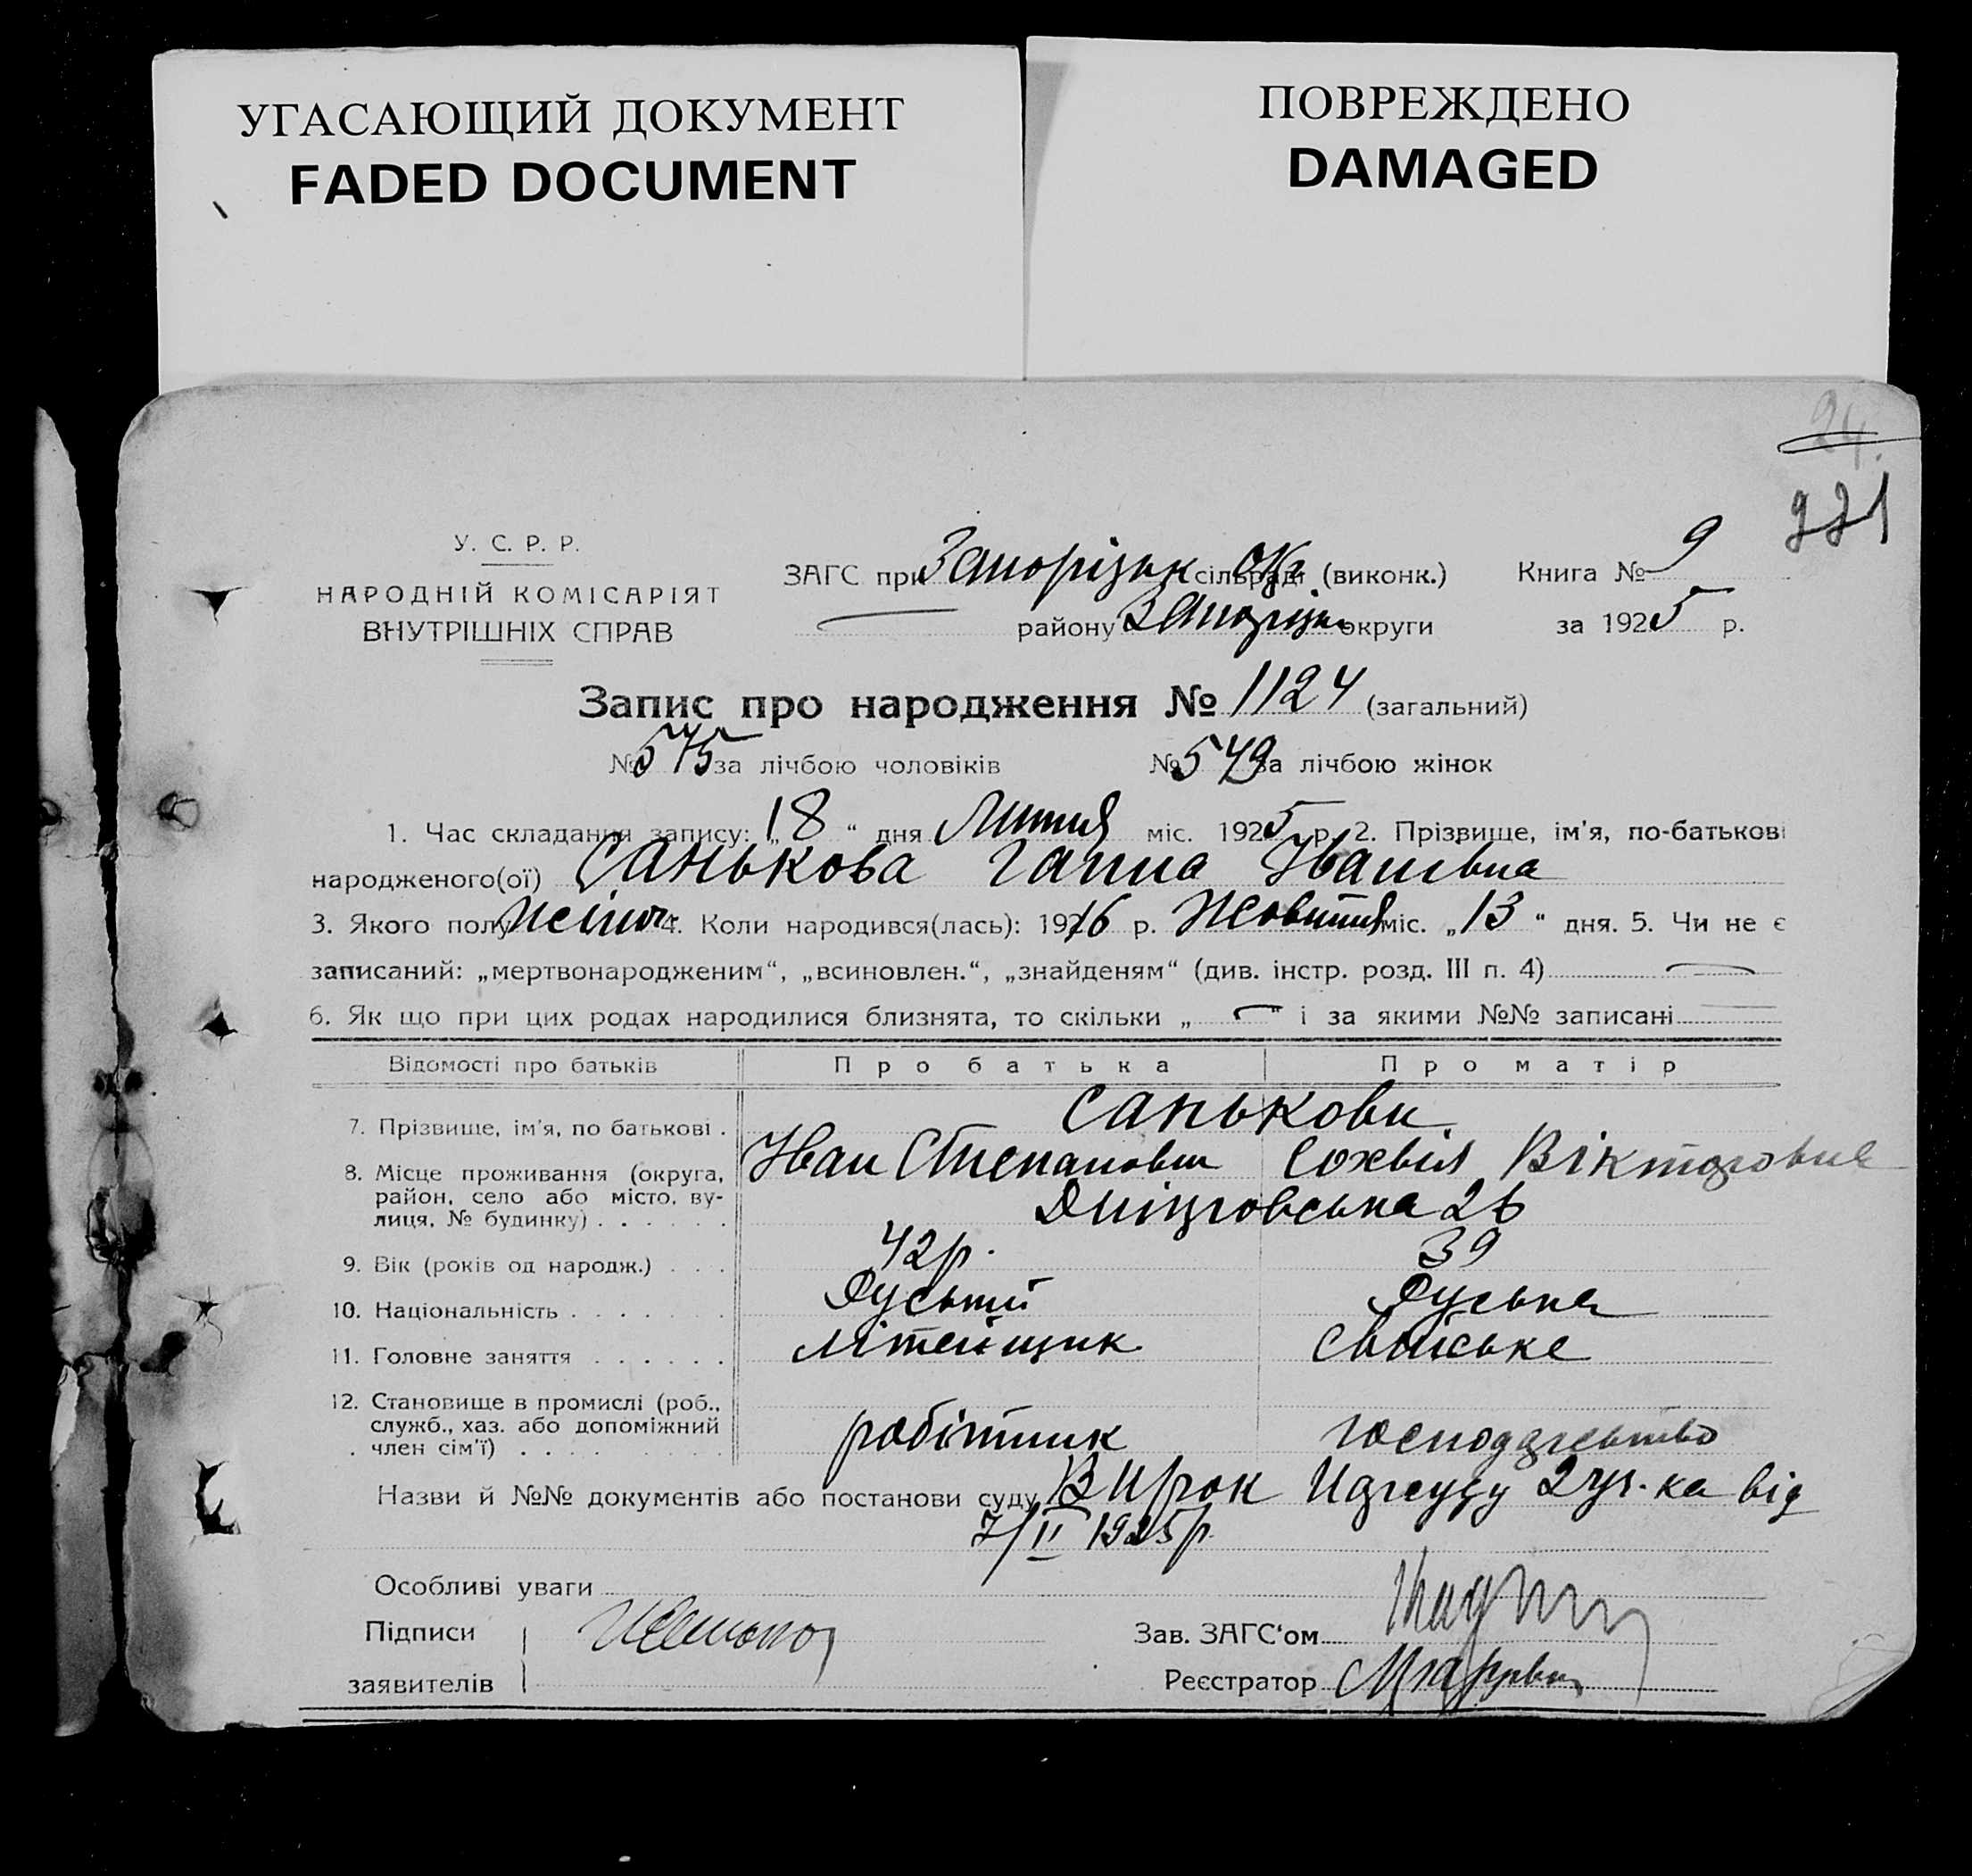 УГАСАЮЩИЙ ДОКУМЕНТ
FADED DOCUMENT
ПОВРЕЖДЕНО
DAMAGED
24.
221
У. С. Р. Р.
НАРОДНІЙ КОМІСАРІЯТ
ВНУТРІШНІХ СПРАВ
ЗАГС при Запорізьк Окр сільраді (виконк.)
району Запоріzьк округи
Книга № 9
за 1925 р.
Запис про народження № 1124 (загальний)
№ 575 за лічбою чоловіків № 549 за лічбою жінок
1. Час складання запису: „18“ дня Лютня міс. 1925 р. 2. Прізвище, ім'я, по-батькові
народженого(ої) Санькова Ганна Іванівна
3. Якого полу жіноч. 4. Коли народився(лась): 1916 р. Жовтня міс. „13“ дня. 5. Чи не є
записаний: „мертвонародженим“, „всиновлен.“, „знайденям“ (див. інстр. розд. III п. 4)
6. Як що при цих родах народилися близнята, то скільки „ “ і за якими №№ записані
Відомості про батьків Про батька Про матір
7. Прізвище, ім'я, по батькові . Санькови
Іван Степанович Софія Вікторовна
8. Місце проживання (округа, район, село або місто, вулиця, № будинку) . . . . . . Дніпровська 26
9. Вік (років од народж.) . . . 42 р. 39
10. Національність . . . . . . Руський Руська
11. Головне заняття . . . . . . літейщик свійське
12. Становище в промислі (роб., служб., хаз. або допоміжний член сім'ї) . . . . робітник господарство
Назви й №№ документів або постанови суду Вирок Нарсуду 2 уч-ка від
7/II 1925 р.
Особливі уваги
Підписи
заявителів
Зав. ЗАГС‘ом
Реєстратор